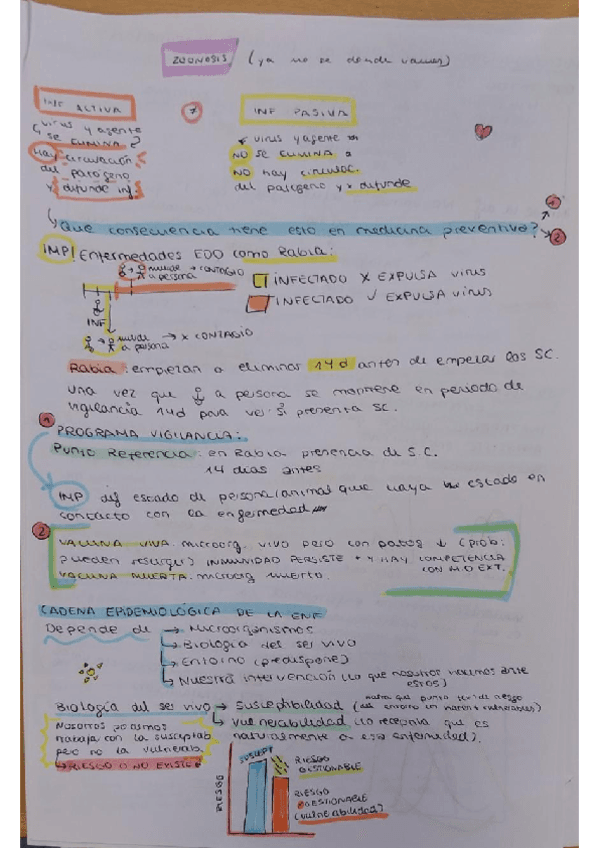 ZOONOSIS (ya no se donde vamos)
INF ACTIVA
virus y agente
SE ELIMINA
Hay circulación
del patógeno
y difunde inf.
7
INF PASIVA
virus y agente
NO SE ELIMINA
NO HAY CIRCULAC.
del patógeno y x difunde
¿Que consecuencia tiene esto en medicina preventiva?
1
2
IMP! Enfermedades EDO como Rabia:
muerde → CONTAGIO
a persona
INFECTADO X EXPULSA VIRUS
INFECTADO ✓ EXPULSA VIRUS
INF
muerde → X CONTAGIO
a persona
Rabia: empiezan a eliminar 14d antes de empezar los SC.
una vez que a persona se mantiene en periodo de
vigilancia 14d para ver si presenta SC.
1
PROGRAMA VIGILANCIA:
Punto Referencia: en Rabia presencia de S.C.
14 días antes
IMP dif estado de persona/animal que haya estado en
contacto con la enfermedad
2
VACUNA VIVA: microorg. vivo pero con patog ↓ (prob:
pueden resurgir) INMUNIDAD PERSISTE + Y HAY COMPETENCIA
CON M.O EXT.
VACUNA MUERTA: microorg MUERTO.
CADENA EPIDEMIOLÓGICA DE LA ENF
Depende de → Microorganismos
→ Biología del ser vivo
→ Entorno (predispone)
→ Nuestra intervención (lo que nosotros hacemos ante
estos)
Biología del ser vivo → Susceptibilidad
→ Vulnerabilidad (lo receptiva que es
naturalmente a esa enfermedad).
Nosotros podemos
trabaja con la susceptib
pero no la vulnerab.
RIESGO O NO EXISTE
RIESGO
SUSCEPT
RIESGO
GESTIONABLE
RIESGO
GESTIONABLE
(vulnerabilidad)